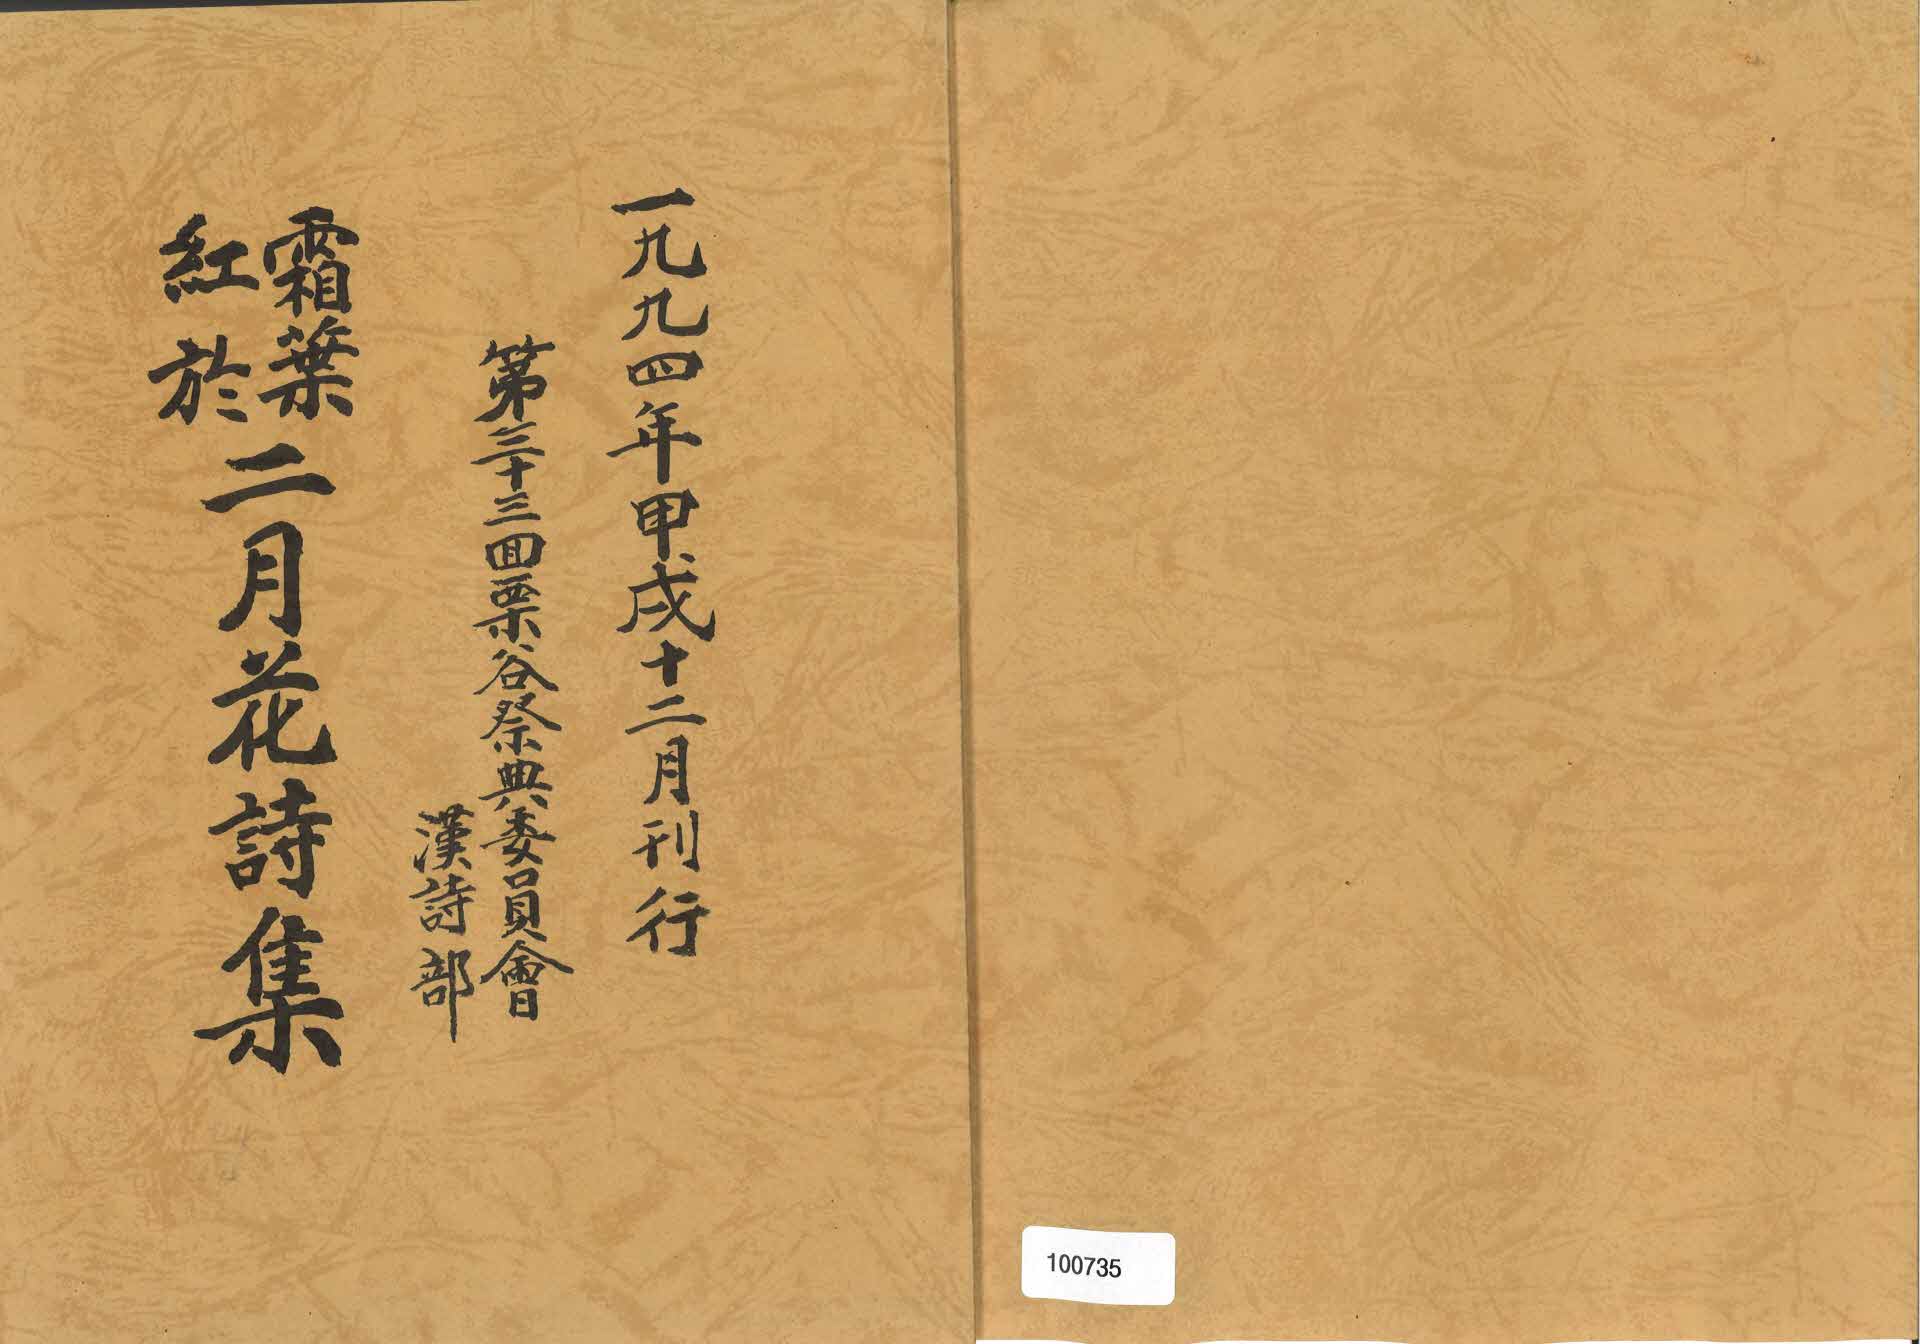 一九九四年甲戌十二月刊行
第三十三回栗谷祭典委員會
漢詩部
霜葉
紅於
二月花詩集
100735